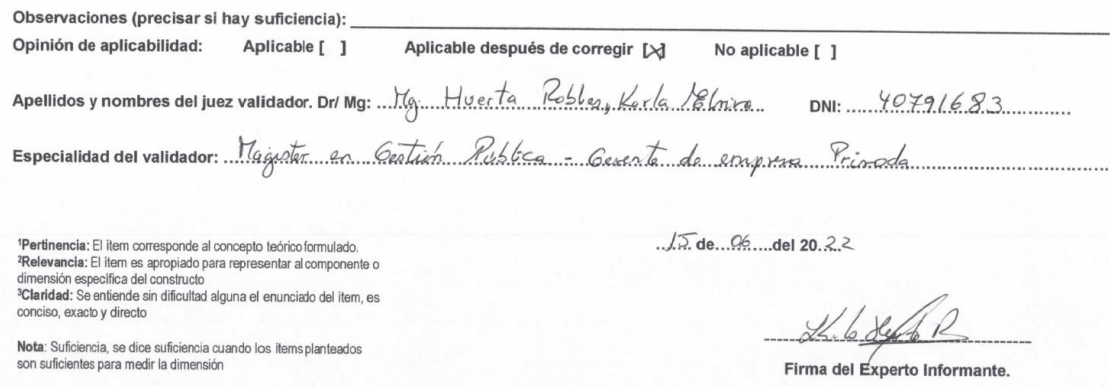 Observaciones (precisar si hay suficiencia):
Opinión de aplicabilidad: Aplicable [ ] Aplicable después de corregir [X] No aplicable [ ]
Apellidos y nombres del juez validador. Dr/ Mg: Mg. Huerta Robles, Karla Elmira DNI: 40791683
Especialidad del validador: Magister en Gestión Pública - Gerente de empresa Privada
15 de 06 del 2022
¹Pertinencia: El ítem corresponde al concepto teórico formulado.
²Relevancia: El ítem es apropiado para representar al componente o
dimensión específica del constructo
³Claridad: Se entiende sin dificultad alguna el enunciado del ítem, es
conciso, exacto y directo
Nota: Suficiencia, se dice suficiencia cuando los ítems planteados
son suficientes para medir la dimensión
Firma del Experto Informante.